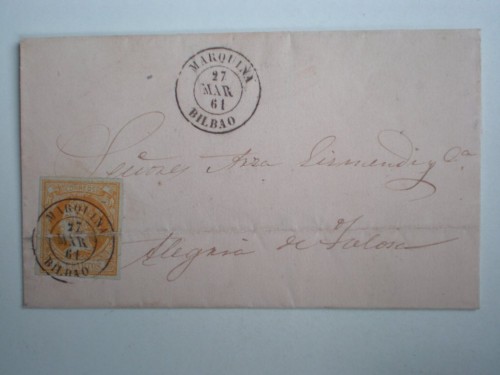 MARQUINA
27
MAR
61
BILBAO
Señores Arza y Cª
Alegria de Tolosa
MARQUINA
27
MAR
61
BILBAO